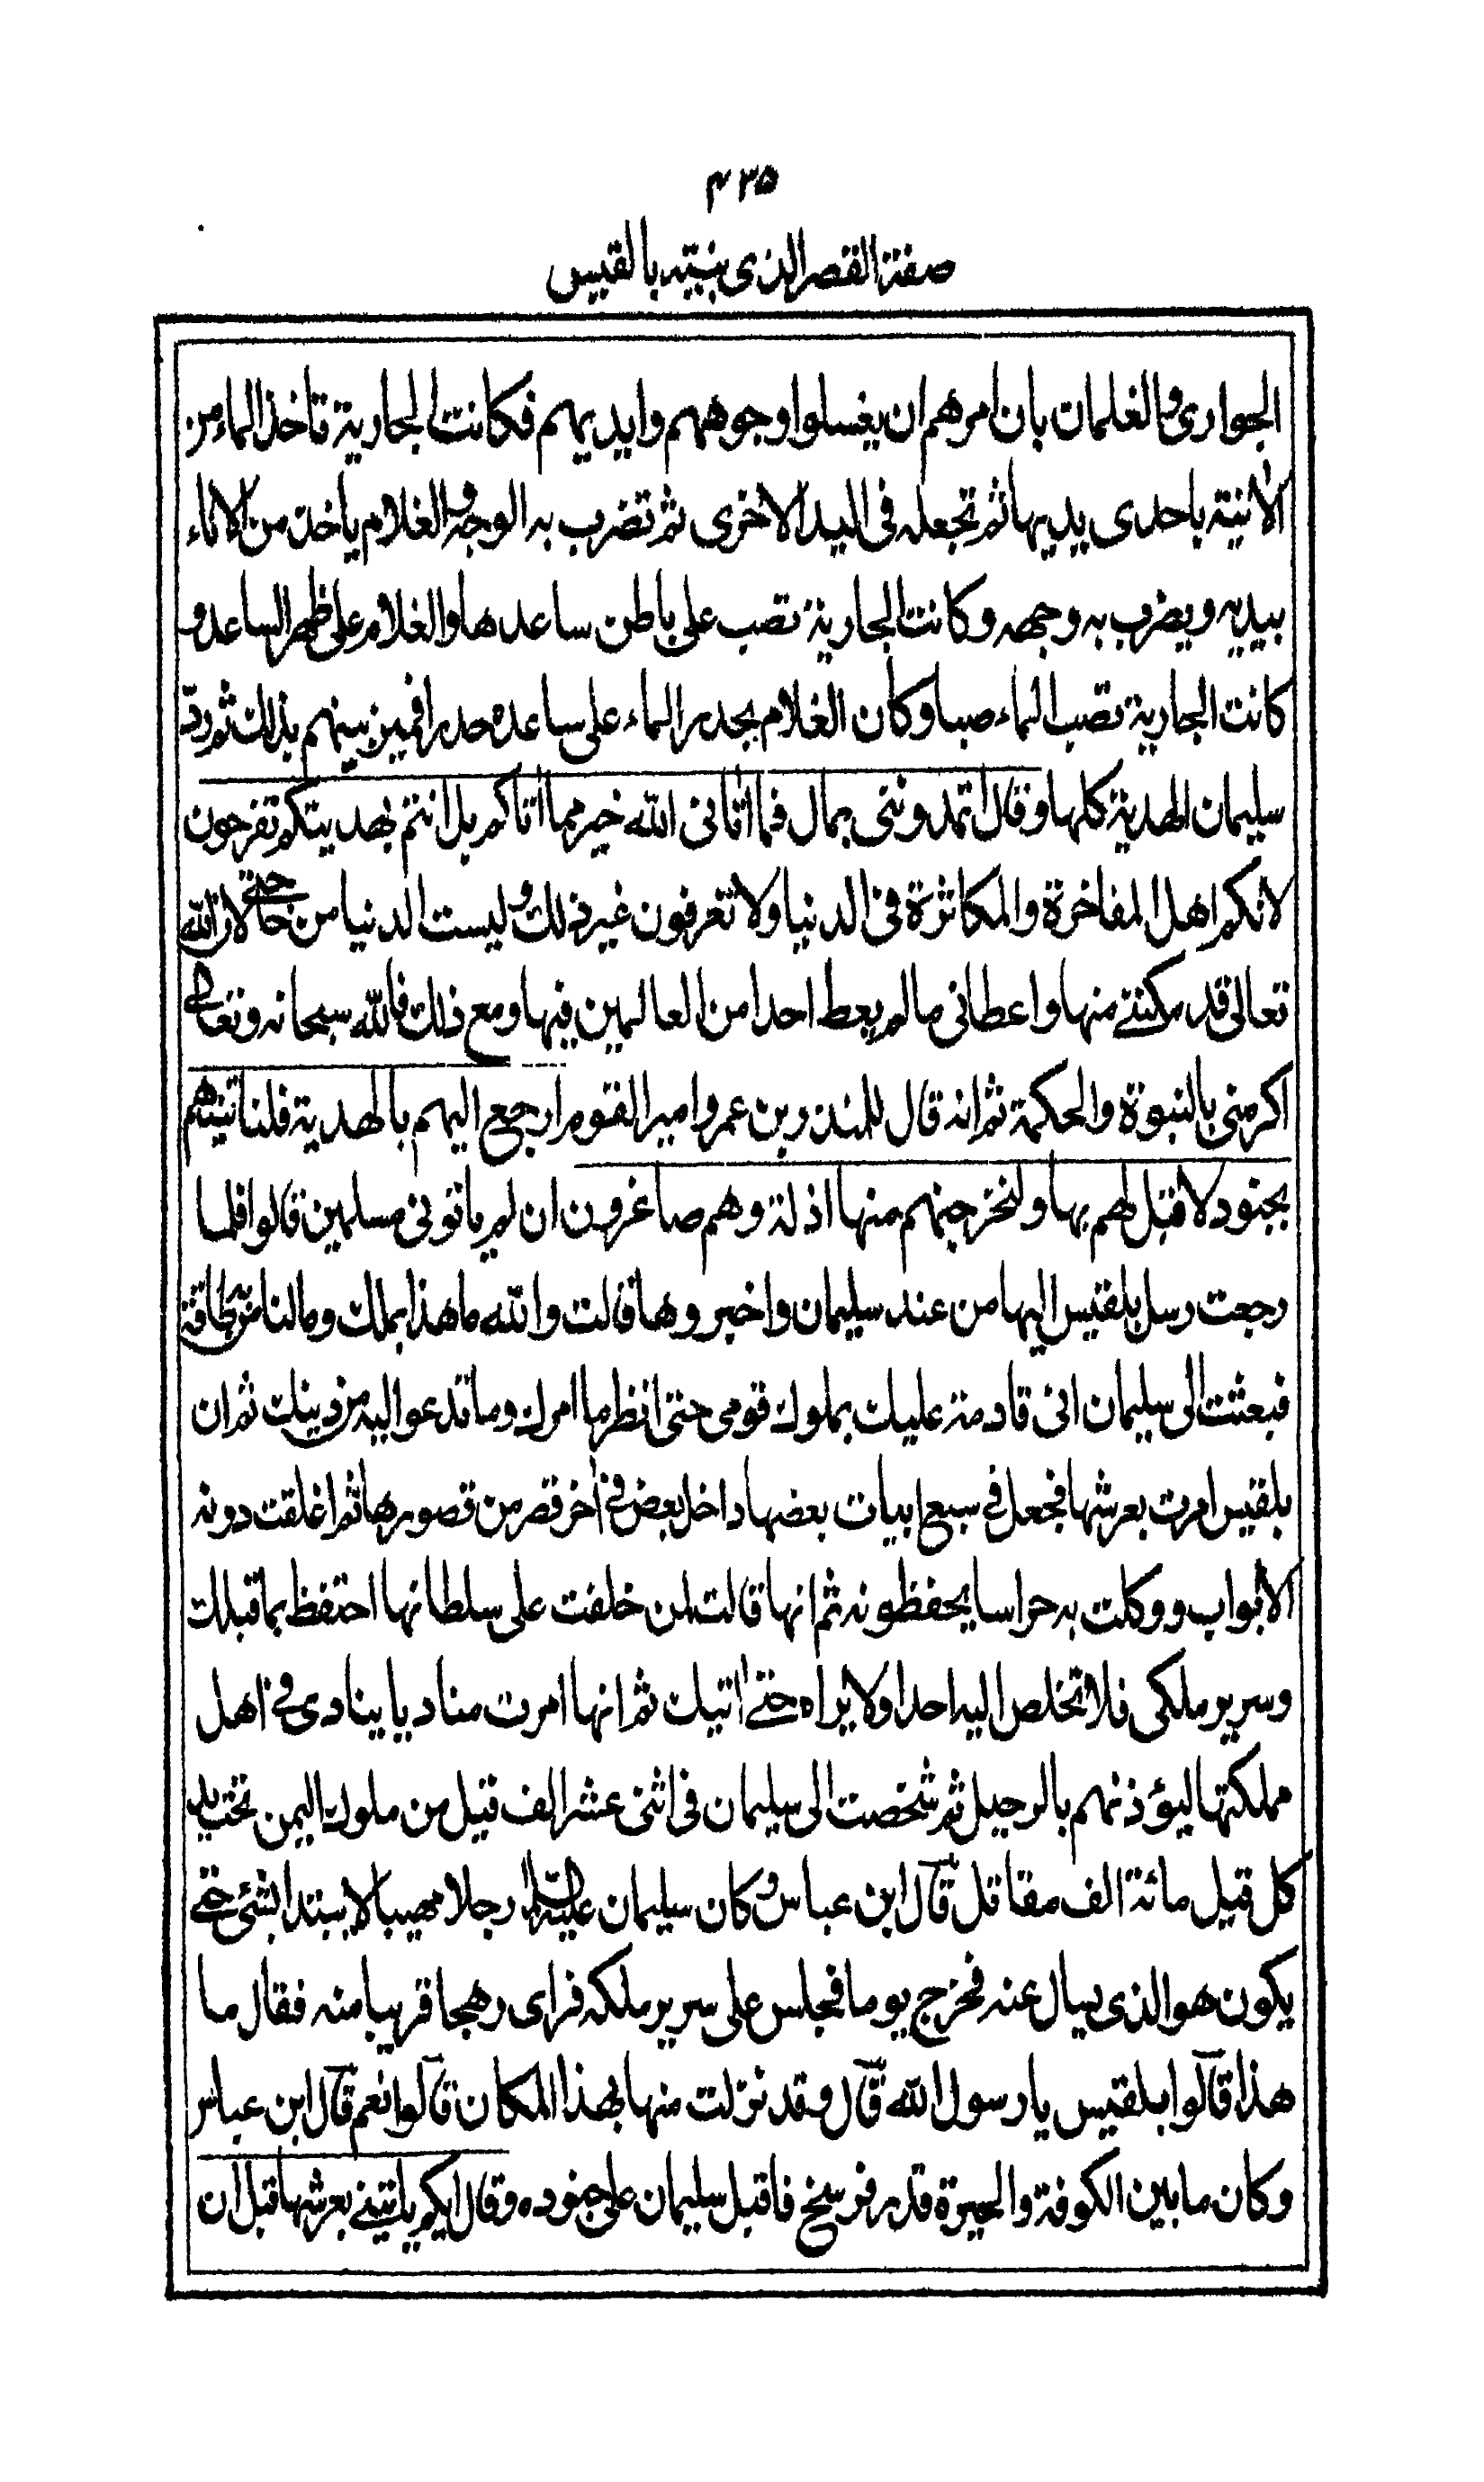 ۴۳۵
صفة القصر الذی بنیته بالقیس
الجواری والغلمان بان امرهم ان یغسلوا وجوههم وایدیهم فکانت الجاریة تاخذ الماء من
الآنیة باحدی یدیها ثم تجعله فی الید الاخری ثم تضرب به الوجه والغلام یاخذ من الاناء
بیدیه ویضرب به وجهه وکانت الجاریة تصب علی باطن ساعدها والغلام علی ظهر الساعد و
کانت الجاریة تصب الماء صبا وکان الغلام یحدر الماء علی ساعده حدرا فمیز بینهم بذلك ثم ردّ
سلیمان الهدیة کلها وقال اتمدوننی بمال فما اتانی الله خیر مما اتاکم بل انتم بهدیتکم تفرحون
لانکم اهل المفاخرة والمکاثرة فی الدنیا ولا تعرفون غیر ذلك ولیست الدنیا من حاجتی لان الله
تعالی قد مکننی منها واعطانی مالم یعط احدا من العالمین فیها ومع ذلك فالله سبحانه وتعالی
اکرمنی بالنبوة والحکمة ثم انه قال للمنذر بن عمرو امیر القوم ارجع الیهم بالهدیة فلناتینهم
بجنود لا قبل لهم بها ولنخرجنهم منها اذلة وهم صاغرون ان لم یاتونی مسلمین قالوا فلما
رجعت رسل بلقیس الیها من عند سلیمان واخبروها قالت والله ما هذا بملك وما لنا من به طاقة
فبعثت الی سلیمان انی قادمة علیك بملوك قومی حتی انظر ما امرك وما تدعوا الیه من دینك ثم ان
بلقیس امرت بعرشها فجعل فی سبع ابیات بعضها داخل بعض فی آخر قصر من قصورها ثم اغلقت دونه
الابواب ووکلت به حراسا یحفظونه ثم انها قالت لمن خلفت علی سلطانها احتفظ بما قبلك
وسریر ملکی فلا تخلص الیه احدا ولا یراه حتی اٰتیك ثم انها امرت منادیا ینادی فی اهل
مملکتها لیؤذنهم بالرحیل ثم شخصت الی سلیمان فی اثنی عشر الف قیل من ملوك الیمن تحت ید
کل قیل مائة الف مقاتل قال ابن عباس وکان سلیمان علیه السلام رجلا مهیبا لا یبتدا بشئ حتی
یکون هو الذی یسال عنه فخرج یوما فجلس علی سریر ملکه فرای رهجا قریبا منه فقال ما
هذا قالوا بلقیس یا رسول الله قال وقد نزلت منها بهذا المکان قالوا نعم قال ابن عباس
وکان ما بین الکوفة والحیرة قدر فرسخ فاقبل سلیمان علی جنوده وقال ایکم یاتینی بعرشها قبل ان